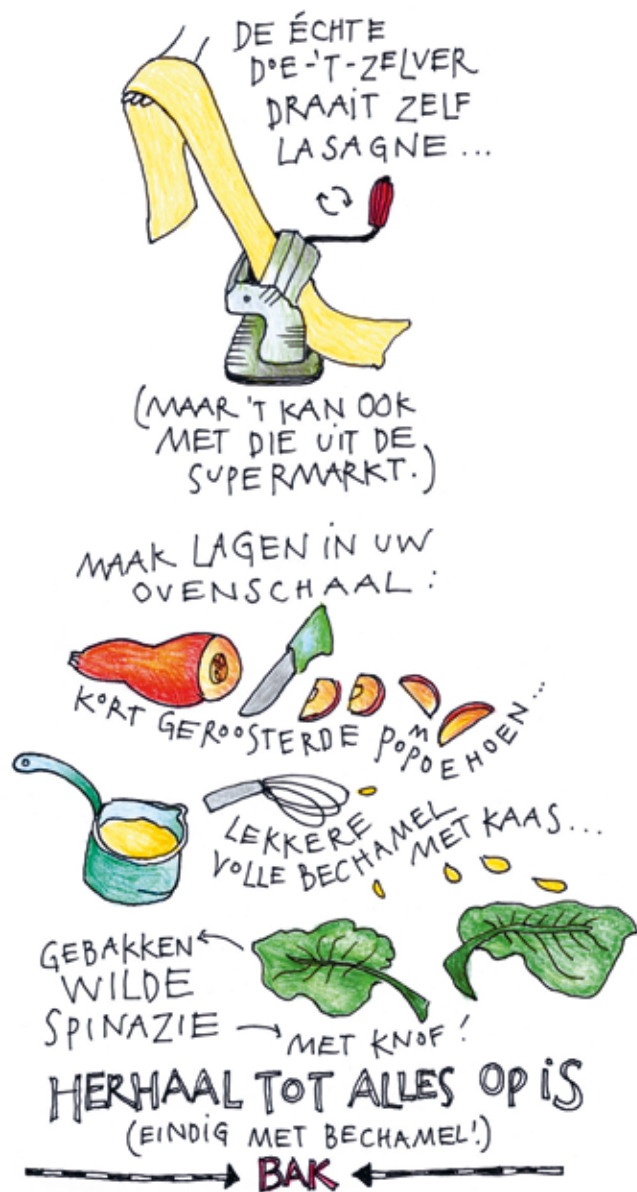 DE ÉCHTE
DOE-'T-ZELVER
DRAAIT ZELF
LASAGNE...
(MAAR 'T KAN OOK
MET DIE UIT DE
SUPERMARKT.)
MAAK LAGEN IN UW
OVENSCHAAL:
KORT GEROOSTERDE POMPOEHOEN...
LEKKERE
VOLLE BECHAMEL
MET KAAS...
GEBAKKEN
WILDE
SPINAZIE
MET KNOF!
HERHAAL TOT ALLES OP IS
(EINDIG MET BECHAMEL!)
BAK